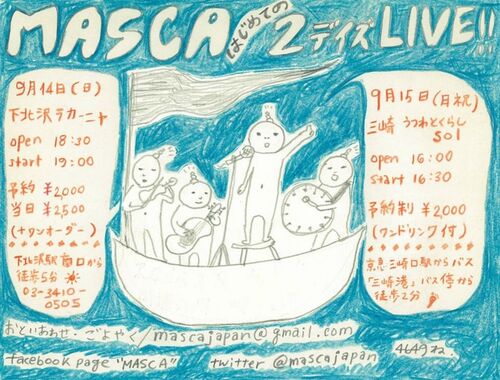 MASCA はじめての 2デイズ LIVE!!
9月14日(日)
下北沢ラカーニャ
open 18:30
start 19:00
予約 ¥2,000
当日 ¥2,500
(+タンオーダー)
下北沢駅 南口から
徒歩5分
03-3410-
0505
9月15日(月祝)
三崎 うつわとくらし
sol
open 16:00
start 16:30
予約制 ¥2,000
(ワンドリンク付)
京急三崎口駅からバス
「三崎港」バス停から
徒歩2分
おといあわせ・ごよやく/mascajapan@gmail.com
facebook page "MASCA" twitter @mascajapan 4649ね.